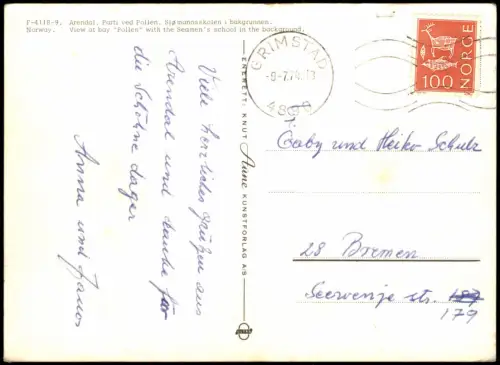 P-4118-9. Arendal. Parti ved Pollen. Sjømannsskolen i bakgrunnen.
Norway. View of bay "Pollen" with the Seamen's school in the background.
Viele herzliche grüßen aus
Arendal und danke für
die Schöhne dager
Anna und Janos
ENERETT: KNUT Aune KUNSTFORLAG A/S
GRIMSTAD
-9-7.74.
4890
NORGE
100
Gaby und Heiko Schulz
28 Bremen
Seewenje str. 187
179